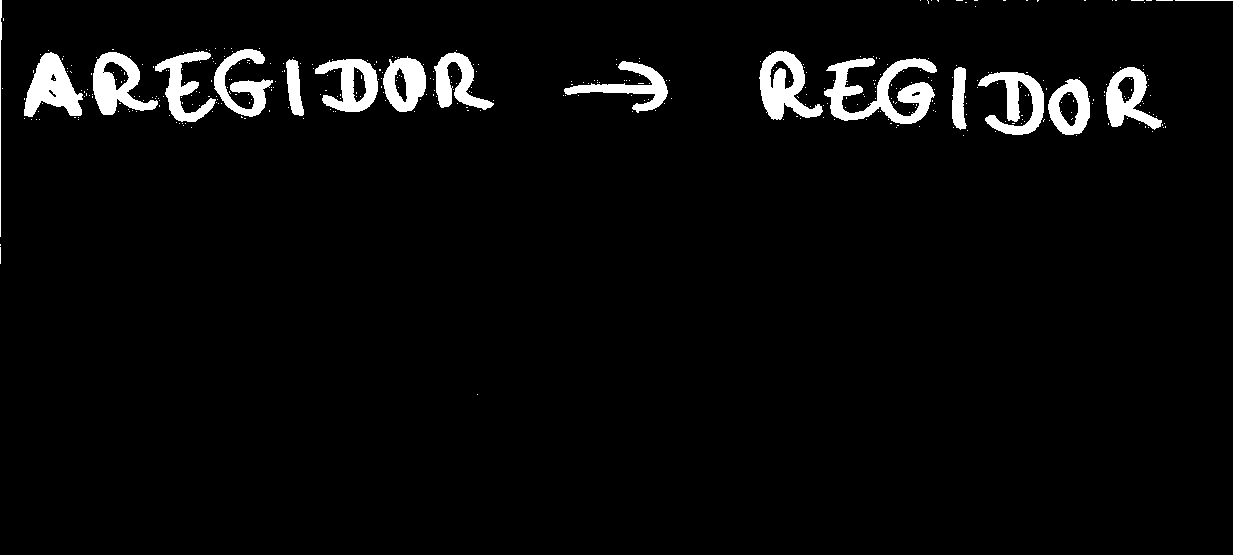 AREGIDOR → REGIDOR